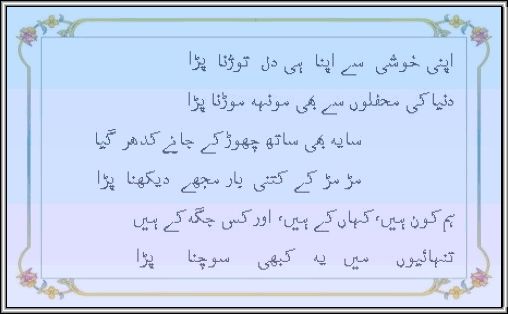 اپنی خوشی سے اپنا ہی دل توڑنا پڑا
دنیا کی محفلوں سے بھی مونہہ موڑنا پڑا
سایہ بھی ساتھ چھوڑ کے جانے کدھر گیا
مڑ مڑ کے کتنی بار مجھے دیکھنا پڑا
ہم کون ہیں، کہاں کے ہیں، اور کس جگہ کے ہیں
تنہائیوں میں یہ کبھی سوچنا پڑا